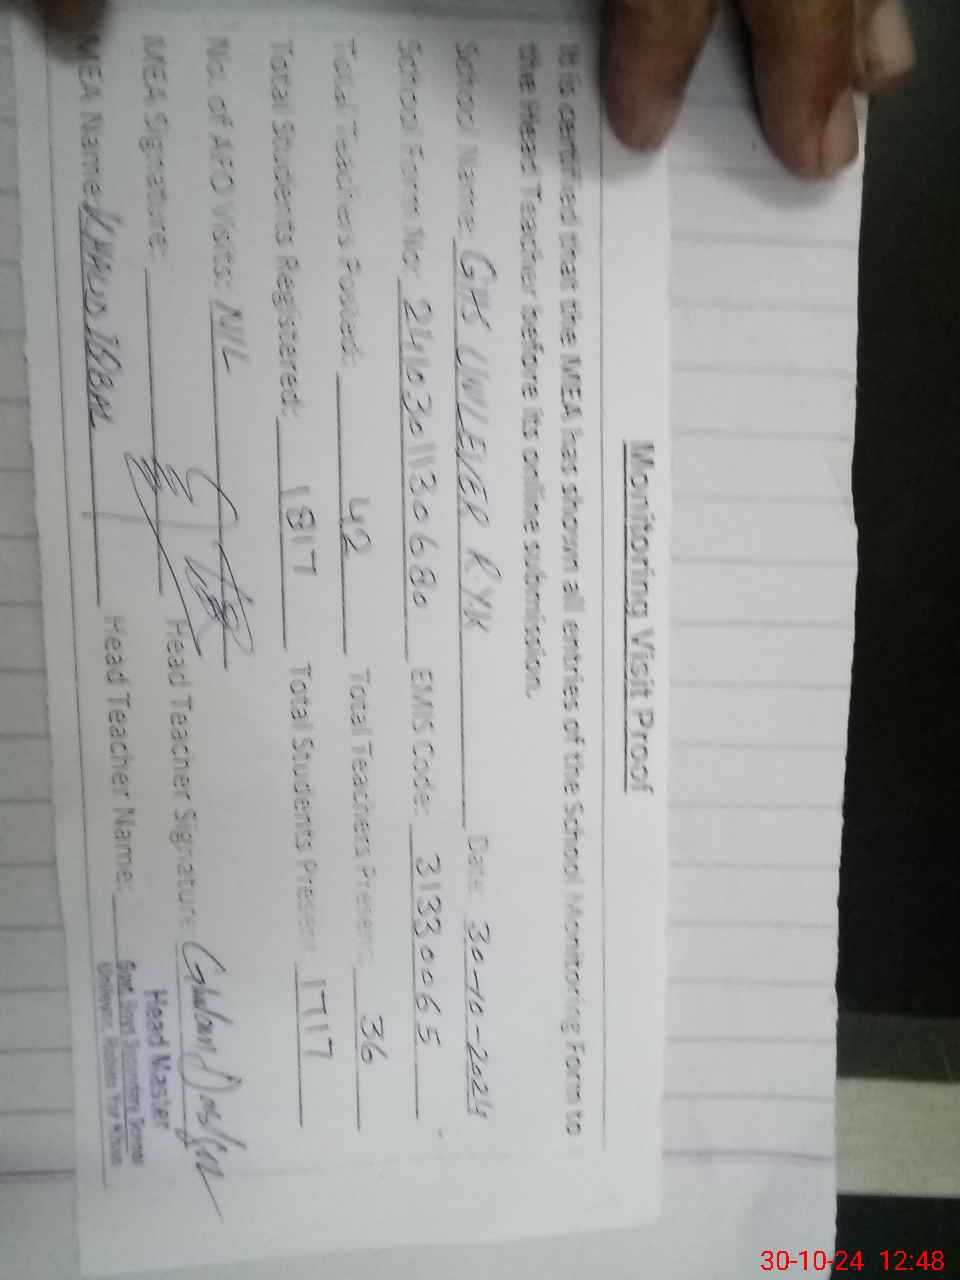 Monitoring Visit Proof
It is certified that the MEA has shown all entries of the School Monitoring Form to
the Head Teacher before its online submission.
School Name: GHS UNLEVER R.Y.K Date: 30-10-2024
School Form No: 2410301130680 EMIS Code: 31330065
Total Teachers Posted: 42 Total Teachers Present: 36
Total Students Registered: 1817 Total Students Present: 1717
No. of AEO Visits: NIL
MEA Signature: Head Teacher Signature:
MEA Name: KHALID IQBAL Head Teacher Name:
Head Master
Unilever, Rahim Yar Khan
30-10-24 12:48